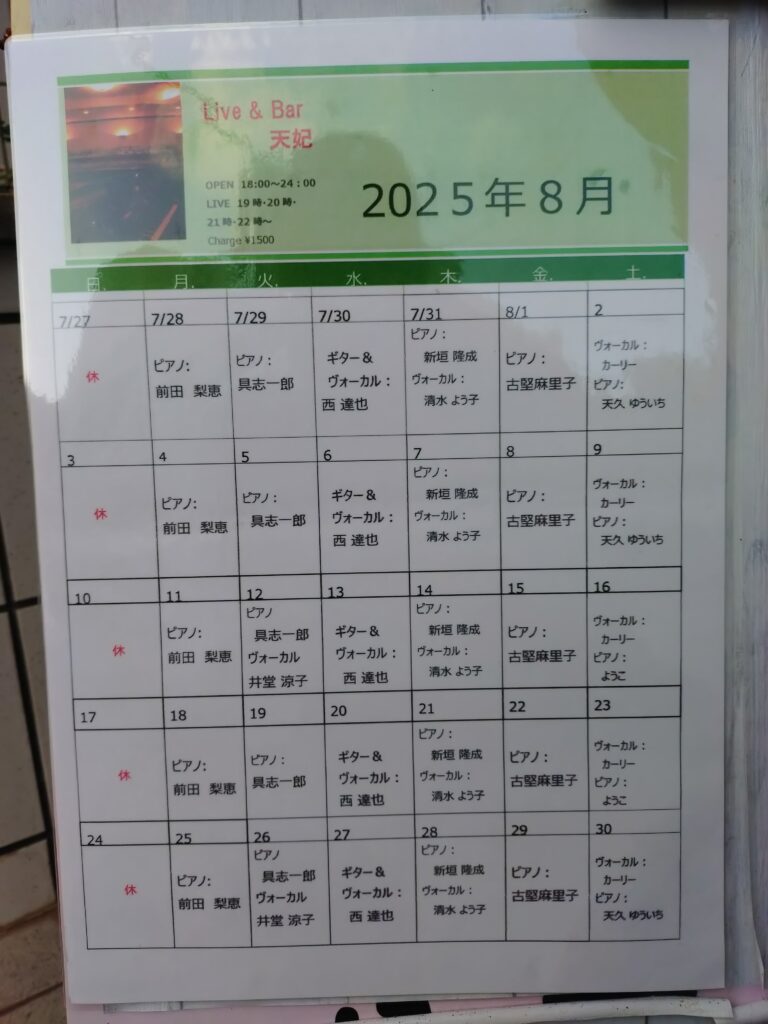 Live & Bar
天妃
OPEN 18:00～24:00
LIVE 19時・20時・
21時・22時～
Charge ¥1500
2025年8月
日. 月. 火. 水. 木. 金. 土.
7/27 7/28 7/29 7/30 7/31 8/1 2
休
ピアノ:
前田 梨恵
ピアノ:
具志一郎
ギター&
ヴォーカル:
西 達也
ピアノ:
新垣 隆成
ヴォーカル:
清水 よう子
ピアノ:
古堅麻里子
ヴォーカル:
カーリー
ピアノ:
天久 ゆういち
3 4 5 6 7 8 9
休
ピアノ:
前田 梨恵
ピアノ:
具志一郎
ギター&
ヴォーカル:
西 達也
ピアノ:
新垣 隆成
ヴォーカル:
清水 よう子
ピアノ:
古堅麻里子
ヴォーカル:
カーリー
ピアノ:
天久 ゆういち
10 11 12 13 14 15 16
休
ピアノ:
前田 梨恵
ピアノ
具志一郎
ヴォーカル
井堂 涼子
ギター&
ヴォーカル:
西 達也
ピアノ:
新垣 隆成
ヴォーカル:
清水 よう子
ピアノ:
古堅麻里子
ヴォーカル:
カーリー
ピアノ:
ようこ
17 18 19 20 21 22 23
休
ピアノ:
前田 梨恵
ピアノ:
具志一郎
ギター&
ヴォーカル:
西 達也
ピアノ:
新垣 隆成
ヴォーカル:
清水 よう子
ピアノ:
古堅麻里子
ヴォーカル:
カーリー
ピアノ:
ようこ
24 25 26 27 28 29 30
休
ピアノ:
前田 梨恵
ピアノ
具志一郎
ヴォーカル
井堂 涼子
ギター&
ヴォーカル:
西 達也
ピアノ:
新垣 隆成
ヴォーカル:
清水 よう子
ピアノ:
古堅麻里子
ヴォーカル:
カーリー
ピアノ:
天久 ゆういち